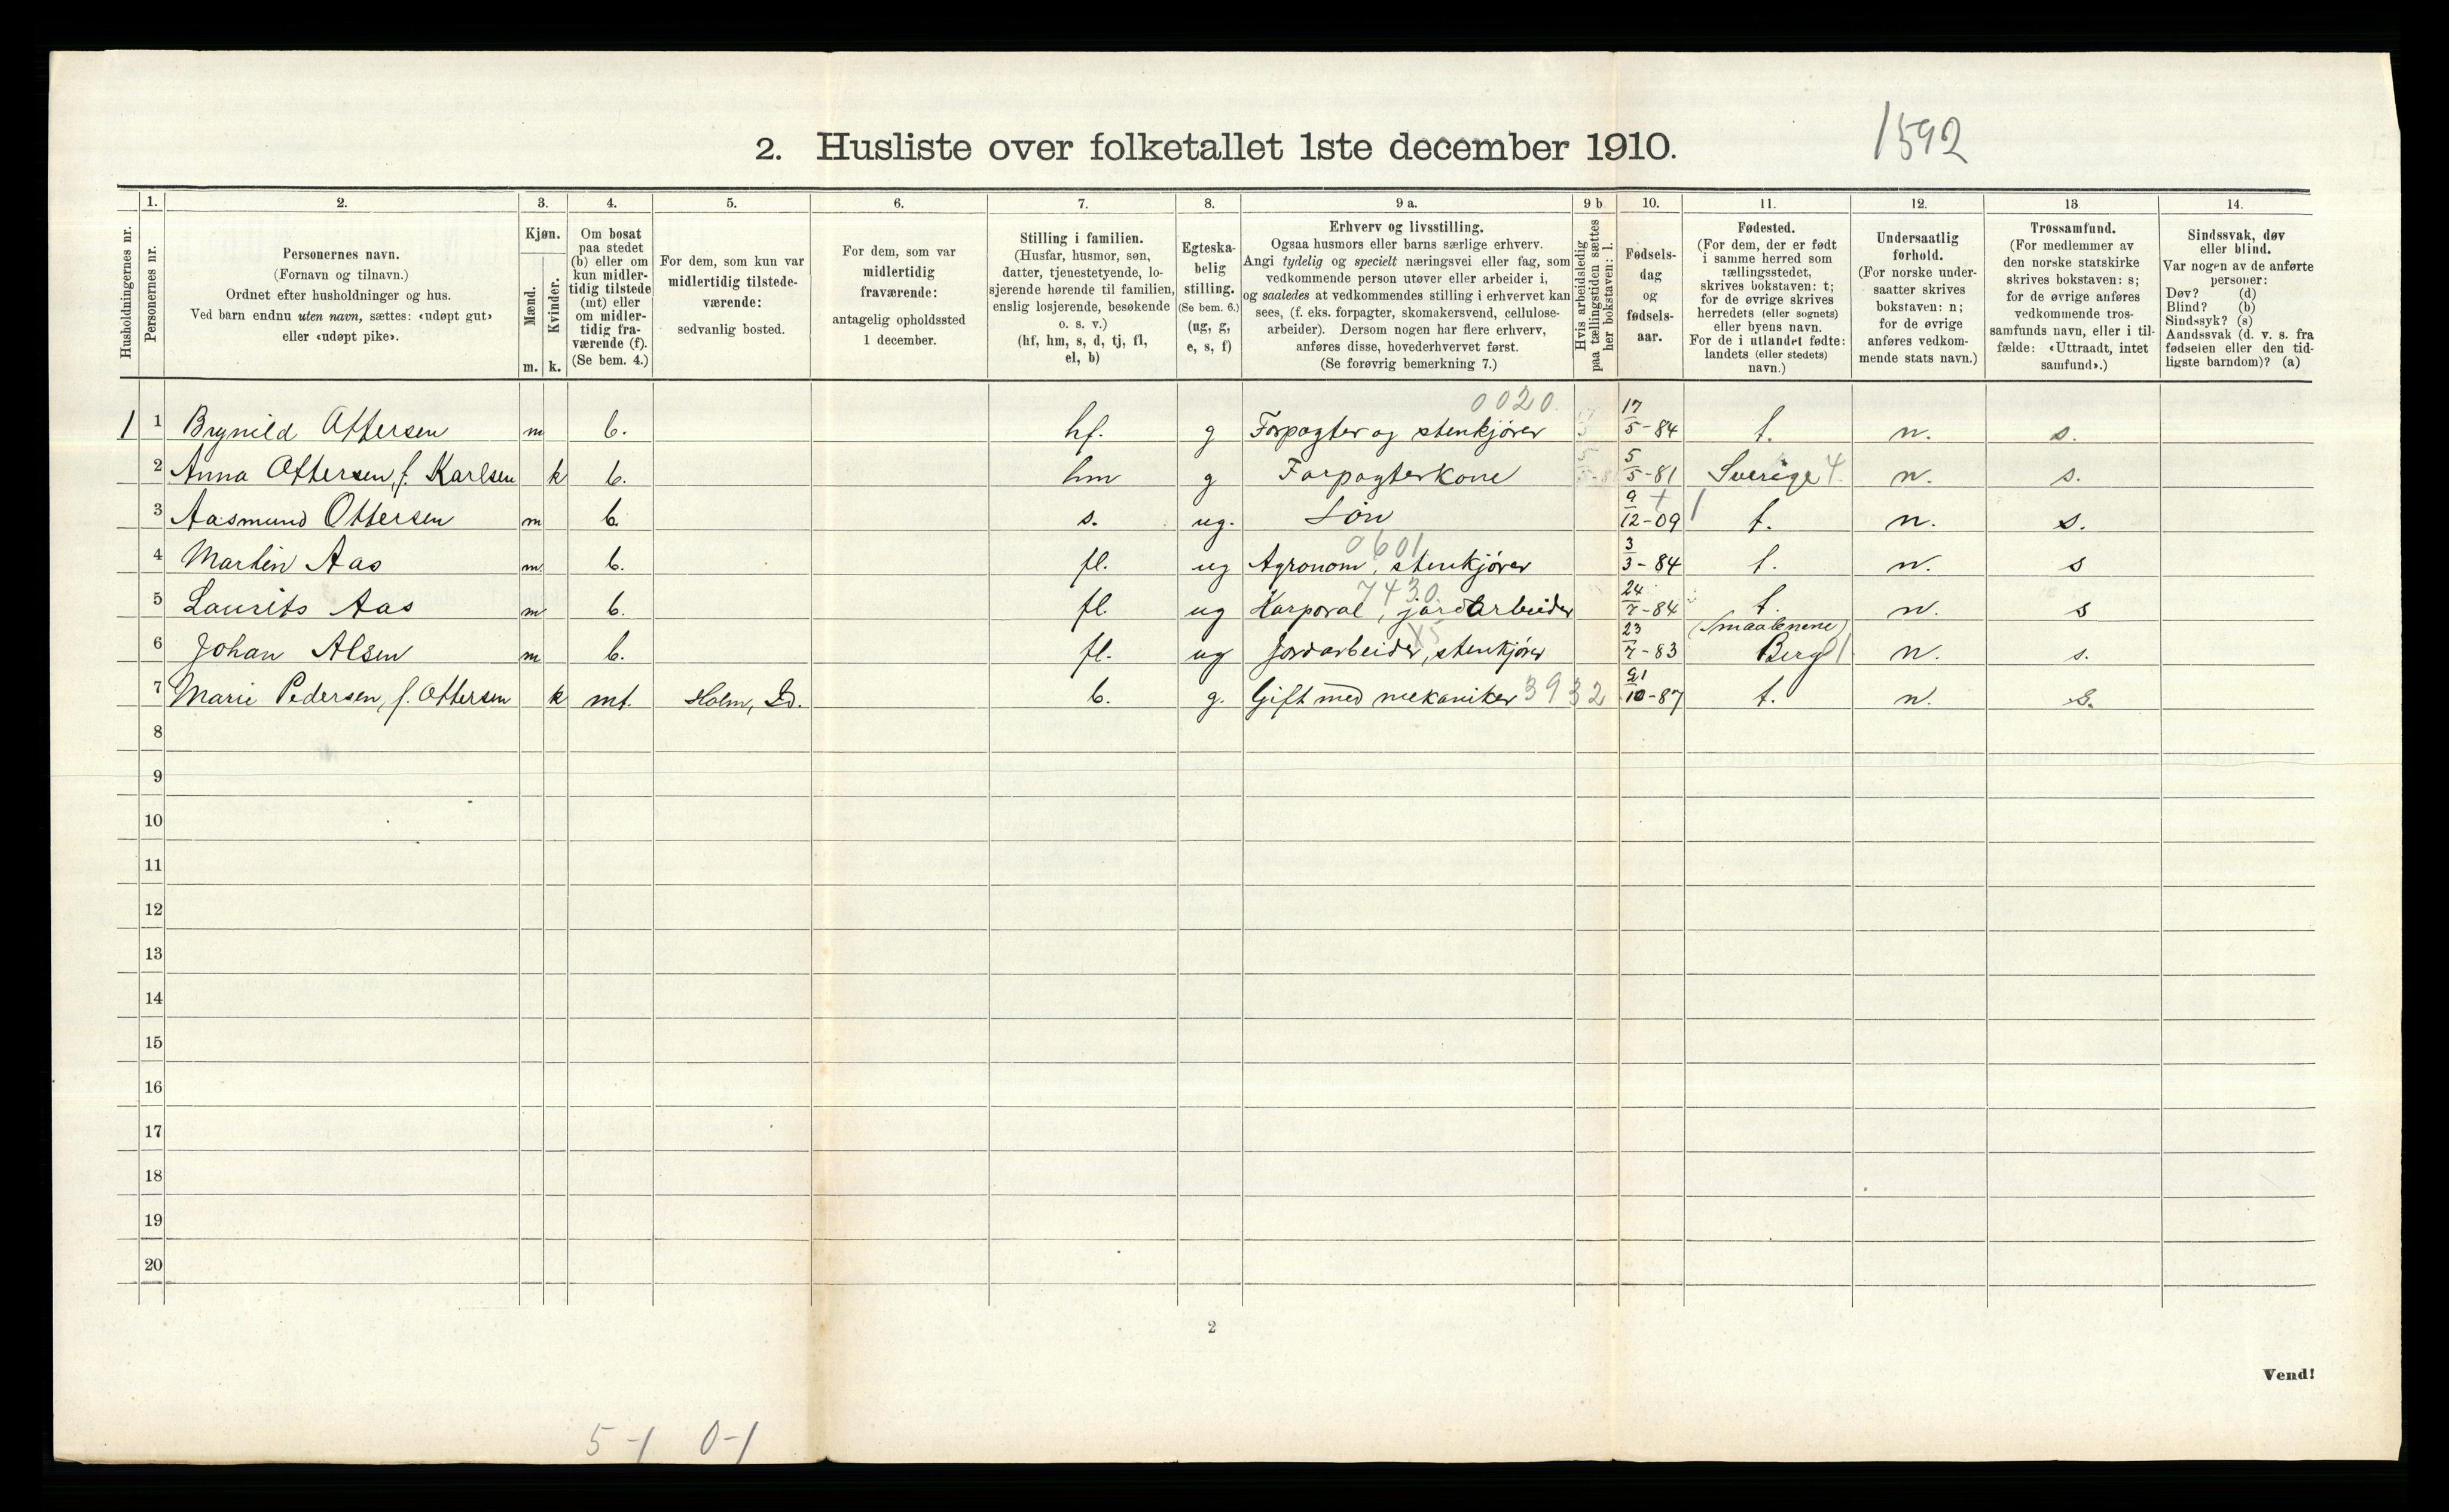 2. Husliste over folketallet 1ste december 1910.
1592
Husholdningernes nr.
1.
Personernes nr.
2.
Personernes navn.
(Fornavn og tilnavn.)
Ordnet efter husholdninger og hus.
Ved barn endnu uten navn, sættes: «udøpt gut»
eller «udøpt pike».
3.
Kjøn.
Mænd.
Kvinder.
m. k.
4.
Om bosat
paa stedet
(b) eller om
kun midler-
tidig tilstede
(mt) eller
om midler-
tidig fra-
værende (f).
(Se bem. 4.)
5.
For dem, som kun var
midlertidig tilstede-
værende:
sedvanlig bosted.
6.
For dem, som var
midlertidig
fraværende:
antagelig opholdssted
1 december.
7.
Stilling i familien.
(Husfar, husmor, søn,
datter, tjenestetyende, lo-
sjerende hørende til familien,
enslig losjerende, besøkende
o. s. v.)
(hf, hm, s, d, tj, fl,
el, b)
8.
Egteska-
belig
stilling.
(Se bem. 6.)
(ug, g,
e, s, f)
9 a.
Erhverv og livsstilling.
Ogsaa husmors eller barns særlige erhverv.
Angi tydelig og specielt næringsvei eller fag, som
vedkommende person utøver eller arbeider i,
og saaledes at vedkommendes stilling i erhvervet kan
sees, (f. eks. forpagter, skomakersvend, cellulose-
arbeider). Dersom nogen har flere erhverv,
anføres disse, hovederhvervet først.
(Se forøvrig bemerkning 7.)
9 b
Hvis arbeidsledig
paa tællingstiden sættes
her bokstaven: l.
10.
Fødsels-
dag
og
fødsels-
aar.
11.
Fødested.
(For dem, der er født
i samme herred som
tællingsstedet,
skrives bokstaven: t;
for de øvrige skrives
herredets (eller sognets)
eller byens navn.
For de i utlandet fødte:
landets (eller stedets)
navn.)
12.
Undersaatlig
forhold.
(For norske under-
saatter skrives
bokstaven: n;
for de øvrige
anføres vedkom-
mende stats navn.)
13.
Trossamfund.
(For medlemmer av
den norske statskirke
skrives bokstaven: s;
for de øvrige anføres
vedkommende tros-
samfunds navn, eller i til-
fælde: «Uttraadt, intet
samfund».)
14.
Sindssvak, døv
eller blind.
Var nogen av de anførte
personer:
Døv? (d)
Blind? (b)
Sindssyk? (s)
Aandssvak (d. v. s. fra
fødselen eller den tid-
ligste barndom)? (a)
0020.
1 1 Brynild Ottersen m b. hf. g Forpagter og stenkjører 17/5-84 t. n. s.
2 Anna Ottersen, f. Karlsen k b. hm g Forpagterkone 5/5-81 Sverige 4. n. s.
3 Aasmund Ottersen m b. s. ug. Søn 9/12-09 t. n. s.
0601
4 Martin Aas m. b. fl. ug Agronom, stenkjører 3/3-84 t. n. s
7430
5 Laurits Aas m b. fl. ug Korporal, jordarbeider 24/7-84 t. n. s
6 Johan Alsen m b. fl. ug Jordarbeider, stenkjører 23/7-83 (Smaalenene) Berg n. s.
7 Marie Pedersen, f. Ottersen k mt. Holm, Id. b. g. Gift med mekaniker 3932 21/10-87 t. n. s.
8
9
10
11
12
13
14
15
16
17
18
19
20
2
Vend!
5-1 0-1